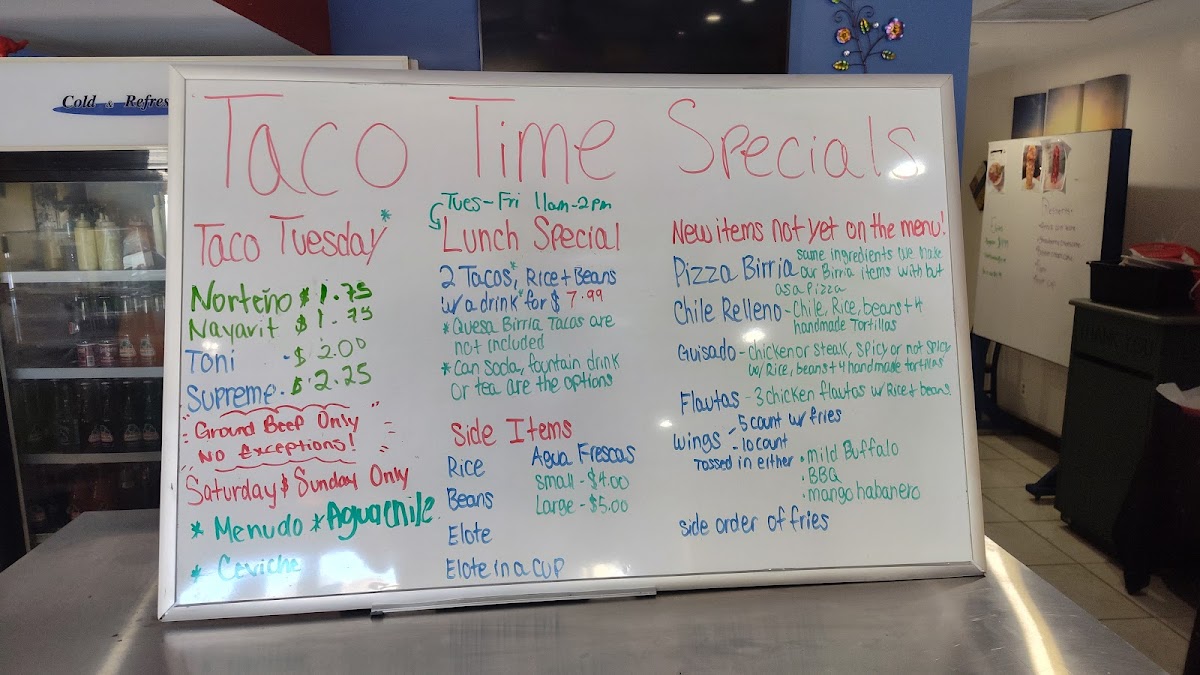 Cold & Refres
Taco Time Specials
Taco Tuesday*
Norteño $1.75
Nayarit $1.75
Toni - $2.00
Supreme - $2.25
Ground Beef Only
No Exceptions!
Saturday & Sunday Only
* Menudo * Aguachile
* Ceviche
Tues-Fri 11am-2pm
Lunch Special
2 Tacos*, Rice + Beans
w/a drink* for $7.99
* Quesa Birria Tacos are
not included
* Can soda, fountain drink
or tea are the options
Side Items
Rice
Beans
Elote
Elote in a cup
Agua Frescas
Small - $4.00
Large - $5.00
New items not yet on the menu!
Pizza Birria same ingredients we make
our Birria items with but
as a pizza
Chile Relleno - Chile, Rice, beans + 4
handmade Tortillas
Guisado - chicken or steak, spicy or not spicy
w/ Rice, beans + 4 handmade tortillas
Flautas - 3 chicken flautas w/ Rice + beans.
Wings - 5 count w/ fries
- 10 count
Tossed in either • mild Buffalo
• BBQ
• mango habanero
side order of fries